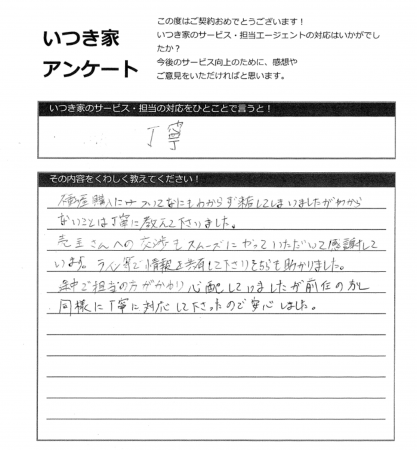 いつき家
アンケート
この度はご契約おめでとうございます！
いつき家のサービス・担当エージェントの対応はいかがでし
たか？
今後のサービス向上のために、感想や
ご意見をいただければと思います。
いつき家のサービス・担当の対応をひとことで言うと！
丁寧
その内容をくわしく教えてください！
不動産購入についてなにもわからず来店してしまいましたがわから
ないことは丁寧に教えて下さいました。
売主さんへの交渉もスムーズにやっていただいて感謝して
います。ライン等で情報を共有して下さりそちらも助かりました。
途中ご担当の方がかわり心配していましたが前任の方と
同様に丁寧に対応して下さったので安心しました。